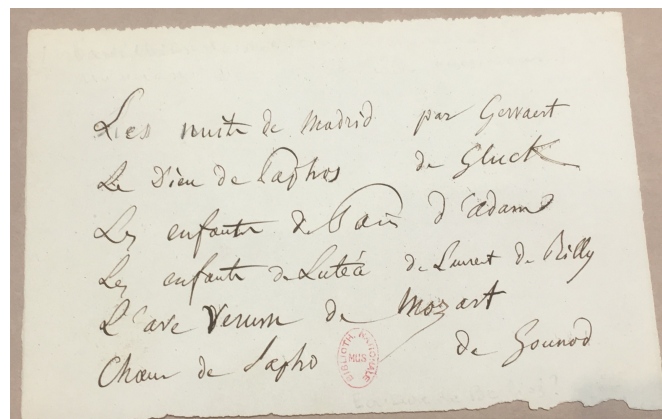 Les nuits de Madrid par Gevaert
Le Dieu de Paphos de Gluck
Les enfants de Paris d'adam
Les enfants de Lutéa de Laurent de Rilly
L'ave Verum de Mozart
Chœur de Sapho de Gounod
BIBLIOTH. NATIONALE
MUS.